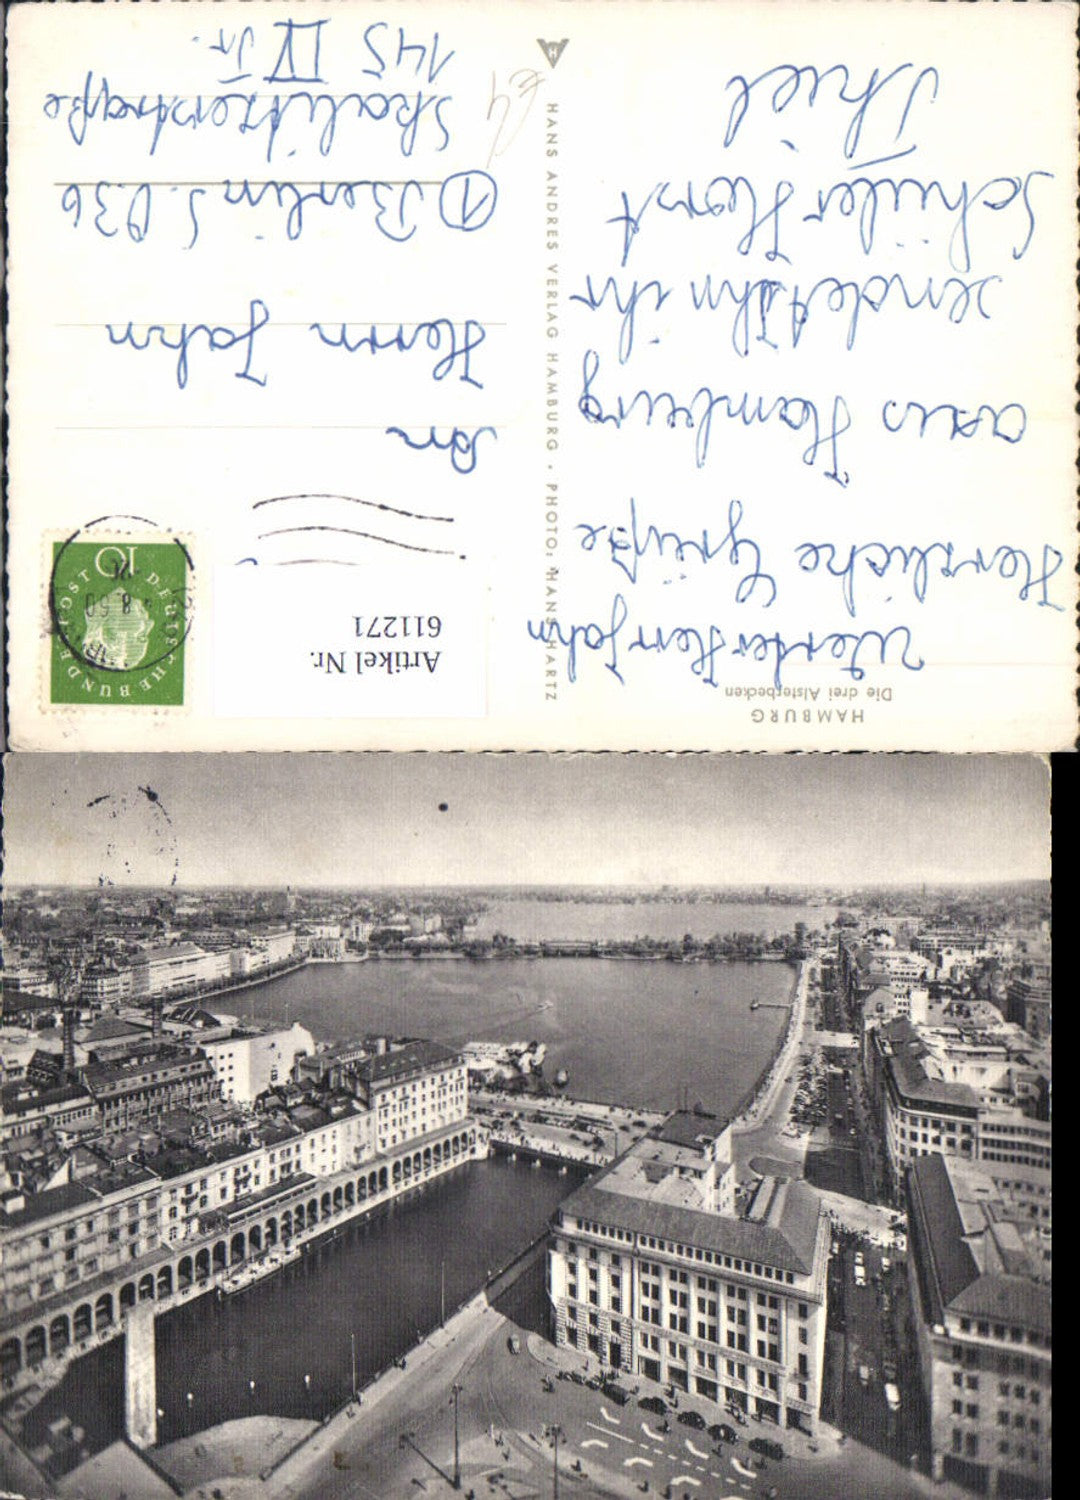 HAMBURG
Die drei Alsterbecken
Werter Herr Jahn
Herzliche Grüße
aus Hamburg
sendet Ihn ihr
Schüler Horst
Thiel
HANS ANDRES VERLAG HAMBURG · PHOTO: HANS HARTZ
H
Artikel Nr.
611271
10
DEUTSCHE BUNDESPOST
An
Herrn Jahn
① Berlin S.O36
Skalitzerstraße
145 IV Tr.